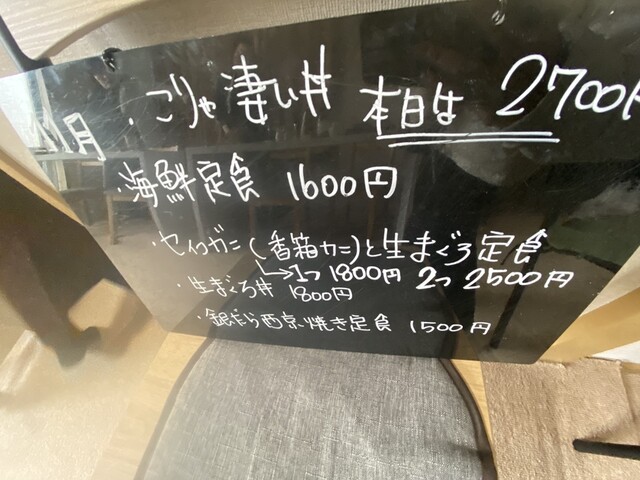 11月
・こりゃ凄い丼 本日は 2700円
・海鮮定食 1600円
・セイコガニ(香箱カニ)と生まぐろ定食
→1つ 1800円 2つ 2500円
・生まぐろ丼 1800円
・銀だら西京焼き定食 1500円